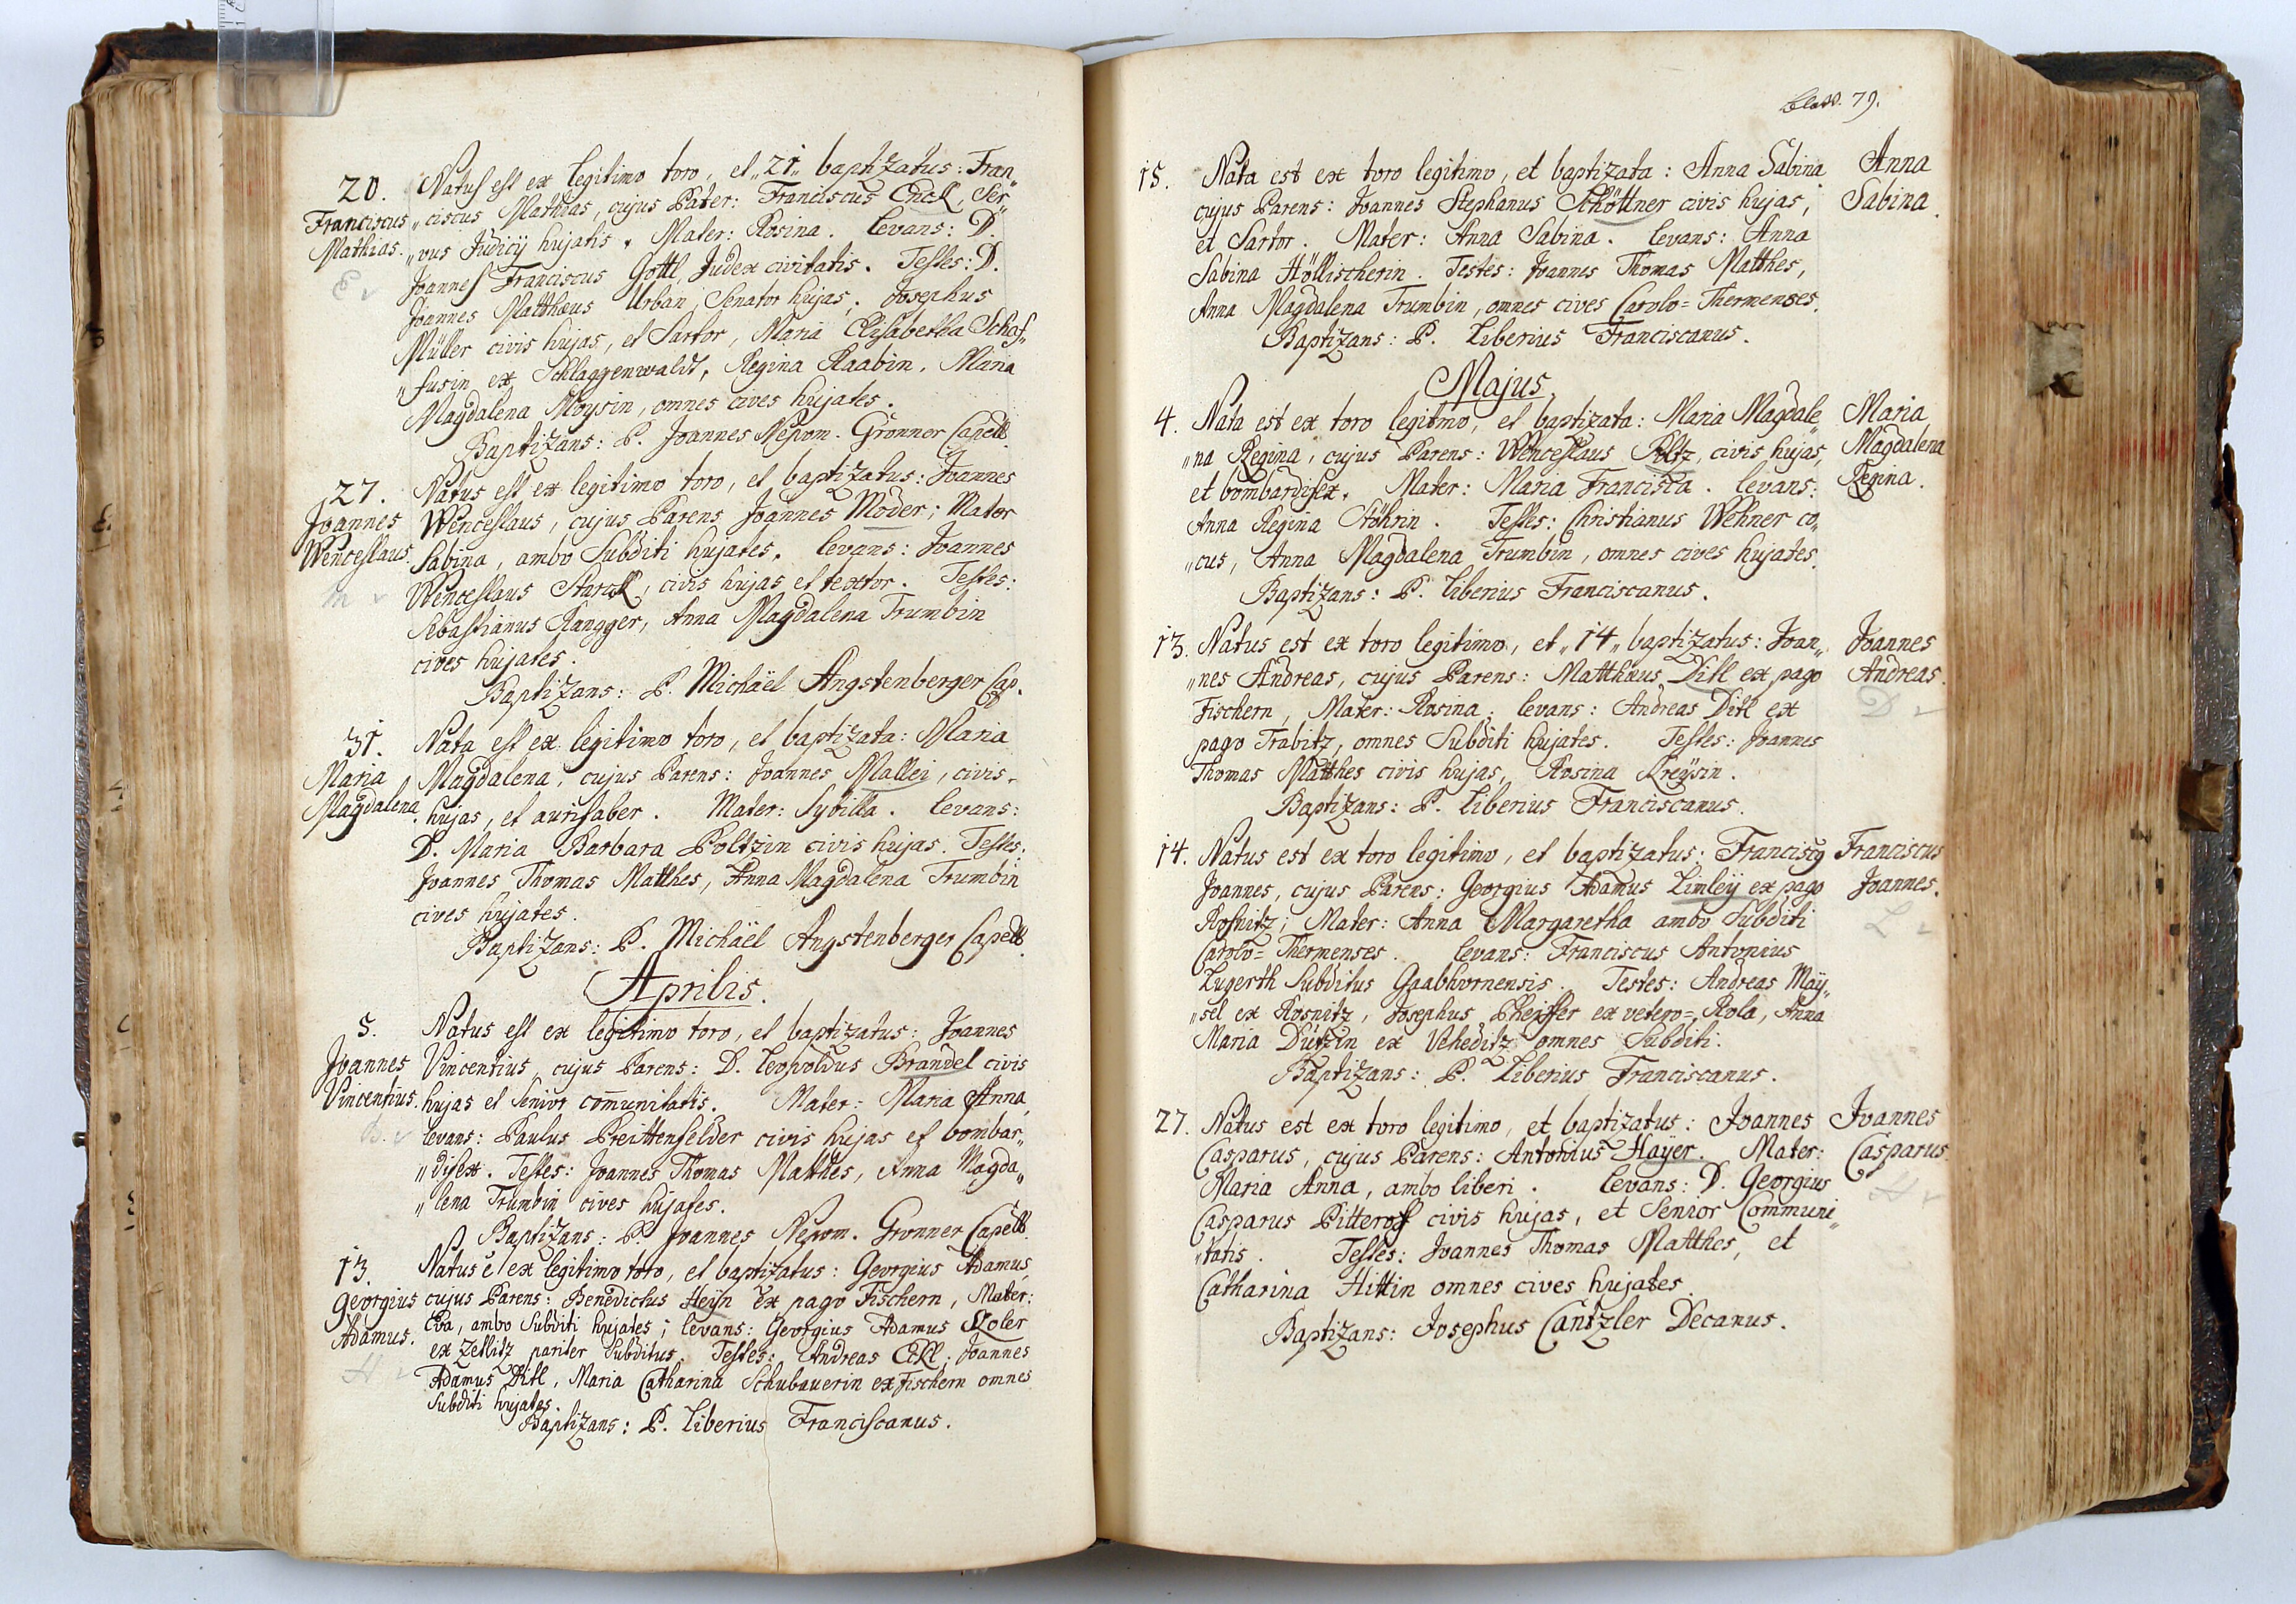 20. Natus est ex legitimo toro, et „21„ baptizatus: Fran„
Franciscus „ciscus Mathias, cujus Pater: Franciscus Enckl, Ser„
Mathias. „vus Judicÿ hujatis. Mater: Rosina. Levans: D.
E
Joannes Franciscus Gottl, Judex civitatis. Testes: D.
Joannes Matthæus Urban, Senator hujas, Josephus
Müller civis hujas, et Sartor, Maria Elisabetha Schaf„
„fusin ex Schlaggenwaldt, Regina Raabin, Maria
Magdalena Moysin, omnes cives hujates.
Baptizans: P. Joannes Nepom. Gronner Capell.
27. Natus est ex legitimo toro, et baptizatus: Joannes
Joannes Wenceslaus, cujus Parens Joannes Moder; Mater
Wenceslaus. Sabina, ambo Subditi hujates. Levans: Joannes
M
Wenceslaus Starck, civis hujas et textor. Testes:
Sebastianus Rangger, Anna Magdalena Trumbin
cives hujates.
Baptizans: P. Michaël Angstenberger Cap.
31. Nata est ex legitimo toro, et baptizata: Maria
Maria Magdalena, cujus Parens: Joannes Mallei, civis
Magdalena. hujas, et aurifaber. Mater: Sybilla. Levans:
D. Maria Barbara Poltzin civis hujas. Testes:
Joannes Thomas Matthes, Anna Magdalena Trumbin
cives hujates.
Baptizans: P. Michaël Angstenberger Capell.
Aprilis.
5. Natus est ex legitimo toro, et baptizatus: Joannes
Joannes Vincentius, cujus Parens: D. Leopoldus Brandel civis
Vincentius. hujas et Senior com̄unitatis. Mater: Maria Anna,
B. Levans: Paulus Preittenfelder civis hujas et bombar„
„difex. Testes: Joannes Thomas Matthes, Anna Magda„
„lena Trumbin cives hujates.
Baptizans: P. Joannes Nepom. Gronner Capell.
13. Natus ē ex legitimo toro, et baptizatus: Georgius Adamus,
Georgius cujus Parens: Benedictus Heÿn ex pago Fischern, Mater:
Adamus. Eva, ambo Subditi hujates; Levans: Georgius Adamus Koler
ex Zettlitz pariter Subditus. Testes: Andreas Eckl; Joannes
H
Adamus Ditl, Maria Catharina Schubauerin ex Fischern omnes
Subditi hujates.
Baptizans: P. Liberius Franciscanus.
79.
15. Nata est ex toro legitimo, et baptizata: Anna Sabina Anna
cujus Parens: Joannes Stephanus Schöttner civis hujas, Sabina.
et Sartor. Mater: Anna Sabina. Levans: Anna
Sabina Höllischerin. Testes: Joannes Thomas Matthes,
Anna Magdalena Trumbin, omnes cives Carolo=Thermenses.
Baptizans: P. Liberius Franciscanus.
Majus.
4. Nata est ex toro legitmo, et baptizata: Maria Magdale„ Maria
„na Regina, cujus Parens: Wenceslaus Poltz, civis hujas, Magdalena
et bombardifex. Mater: Maria Francisca. Levans: Regina.
Anna Regina Stöhrin. Testes: Christianus Wehner co„
„cus, Anna Magdalena Trumbin, omnes cives hujates.
Baptizans: P. Liberius Franciscanus.
13. Natus est ex toro legitimo, et „14„ baptizatus: Joan„ Joannes
„nes Andreas, cujus Parens: Matthæus Ditl ex pago Andreas.
Fischern, Mater: Rosina; Levans: Andreas Ditl ex D
pago Trabitz, omnes Subditi hujates. Testes: Joannes
Thomas Matthes civis hujas, Rosina Kreÿsin.
Baptizans: P. Liberius Franciscanus.
14. Natus est ex toro legitimo, et baptizatus: Franciscg Franciscus
Joannes, cujus Parens: Georgius Adamus Limleÿ ex pago Joannes.
Rosnitz; Mater: Anna Margaretha ambo Subditi L
Carolo=Thermenses. Levans: Franciscus Antonius
Lugerth Subditus Gaabhornensis. Testes: Andreas Maÿ„
„sel ex Rosnitz, Josephus Pfeiffer ex vetero=Rola, Anna
Maria Dützin ex Veheditz omnes Subditi.
Baptizans: P. Liberius Franciscanus.
27. Natus est ex toro legitimo, et baptizatus: Joannes Joannes
Casparus, cujus Parens: Antonius Haÿer. Mater: Casparus
Maria Anna, ambo liberi. Levans: D. Georgius H
Casparus Pitterof civis hujas, et Senior Communi„
„tatis. Testes: Joannes Thomas Matthes, et
Catharina Hittin omnes cives hujates.
Baptizans: Josephus Cantzler Decanus.